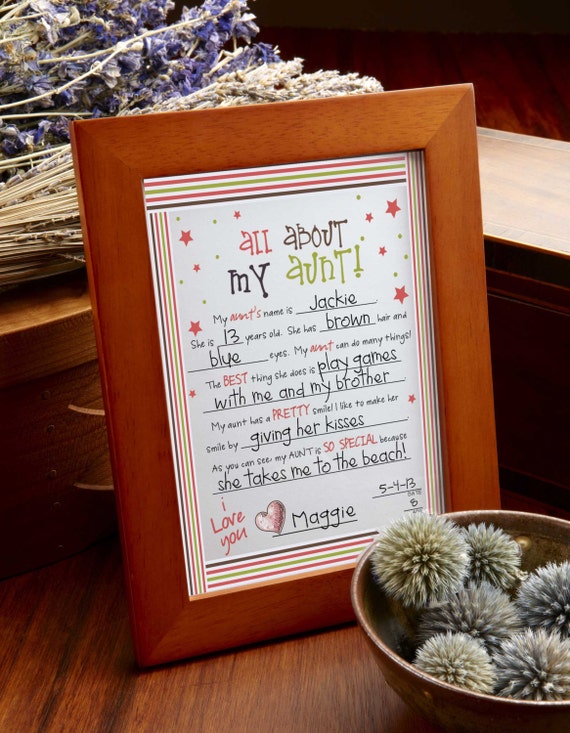 all about
my aunt!
My aunt's name is Jackie
She is 13 years old. She has brown hair and
blue eyes. My aunt can do many things!
The BEST thing she does is play games
with me and my brother
My aunt has a PRETTY smile! I like to make her
smile by giving her kisses
As you can see, my AUNT is SO SPECIAL because
she takes me to the beach!
i Love you
Maggie
5-4-13
DATE
8
AGE